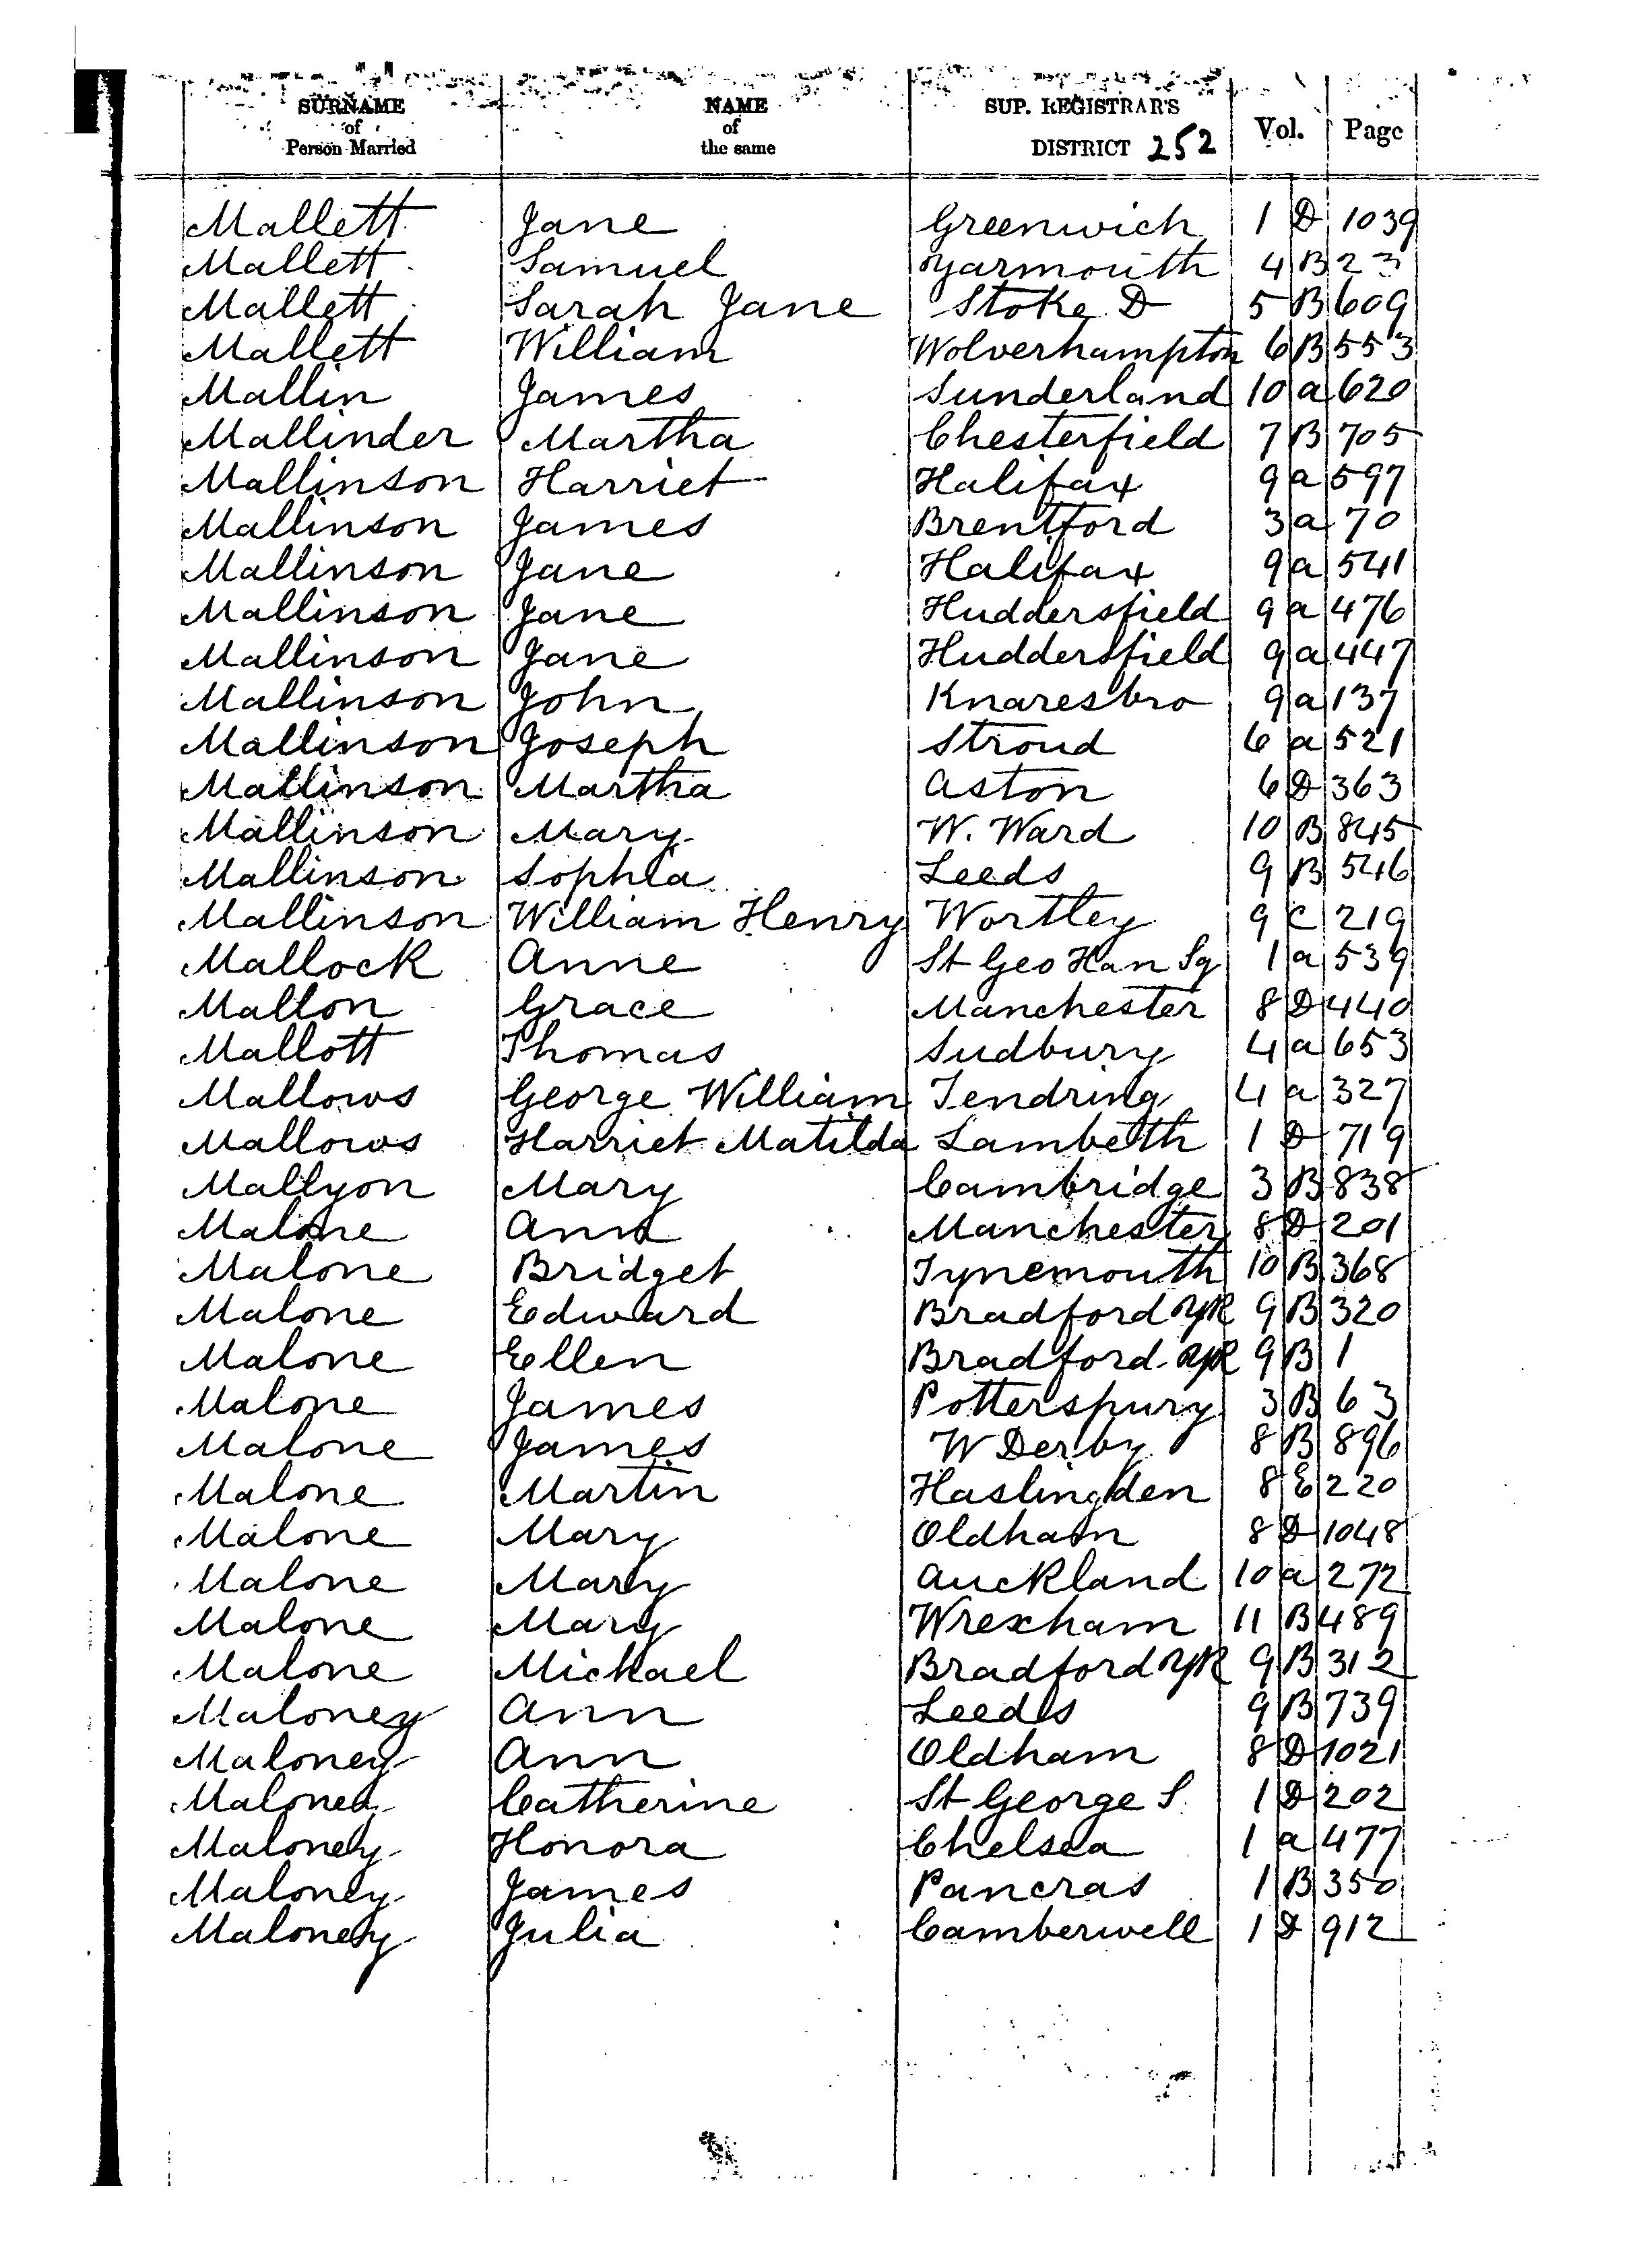 SURNAME of Person Married NAME of the same SUP. REGISTRAR'S DISTRICT 252 Vol. Page
Mallett Jane Greenwich 1 D 1039
Mallett Samuel Yarmouth 4 B 23
Mallett Sarah Jane Stoke D 5 B 609
Mallett William Wolverhampton 6 B 553
Mallin James Sunderland 10 a 620
Mallinder Martha Chesterfield 7 B 705
Mallinson Harriet Halifax 9 a 597
Mallinson James Brentford 3 a 70
Mallinson Jane Halifax 9 a 541
Mallinson Jane Huddersfield 9 a 476
Mallinson Jane Huddersfield 9 a 447
Mallinson John Knaresbro 9 a 137
Mallinson Joseph Stroud 6 a 521
Mallinson Martha Aston 6 D 363
Mallinson Mary W. Ward 10 B 845
Mallinson Sophia Leeds 9 B 546
Mallinson William Henry Wortley 9 C 219
Mallock Anne St Geo Han Sq 1 a 539
Mallon Grace Manchester 8 D 440
Mallott Thomas Sudbury 4 a 653
Mallows George William Tendring 4 a 327
Mallows Harriet Matilda Lambeth 1 D 719
Mallyon Mary Cambridge 3 B 838
Malone Ann Manchester 8 D 201
Malone Bridget Tynemouth 10 B 368
Malone Edward Bradford YK 9 B 320
Malone Ellen Bradford YK 9 B 1
Malone James Potterspury 3 B 63
Malone James W Derby 8 B 896
Malone Martin Haslingden 8 E 220
Malone Mary Oldham 8 D 1048
Malone Mary Auckland 10 a 272
Malone Mary Wrexham 11 B 489
Malone Michael Bradford YK 9 B 312
Maloney Ann Leeds 9 B 739
Maloney Ann Oldham 8 D 1021
Maloney Catherine St George S. 1 D 202
Maloney Honora Chelsea 1 a 477
Maloney James Pancras 1 B 350
Maloney Julia Camberwell 1 D 912